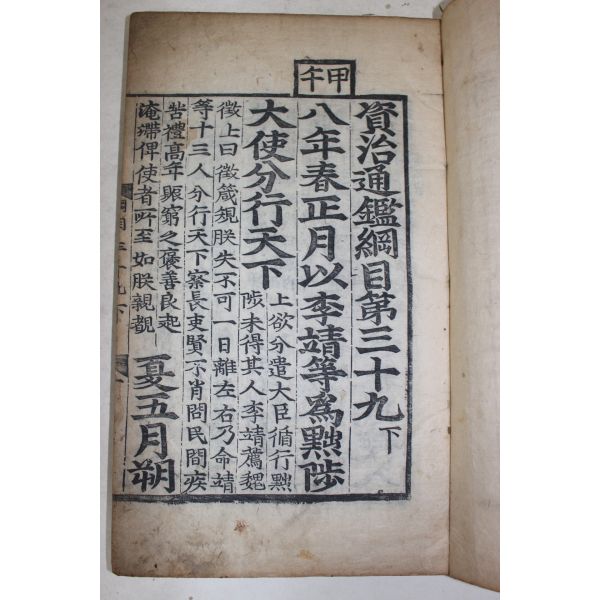 甲午
資治通鑑綱目第三十九下
八年春正月以李靖等爲黜陟
大使分行天下
上欲分遣大臣循行黜
陟未得其人李靖薦魏
徵上曰徵箴規朕失不可一日離左右乃命靖
等十三人分行天下察長吏賢不肖問民間疾
苦禮高年賑窮乏褒善良起
淹滯俾使者所至如朕親覩
夏五月朔
綱目三十九下